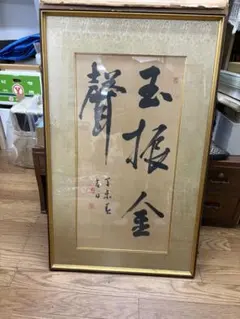 玉振金
聲